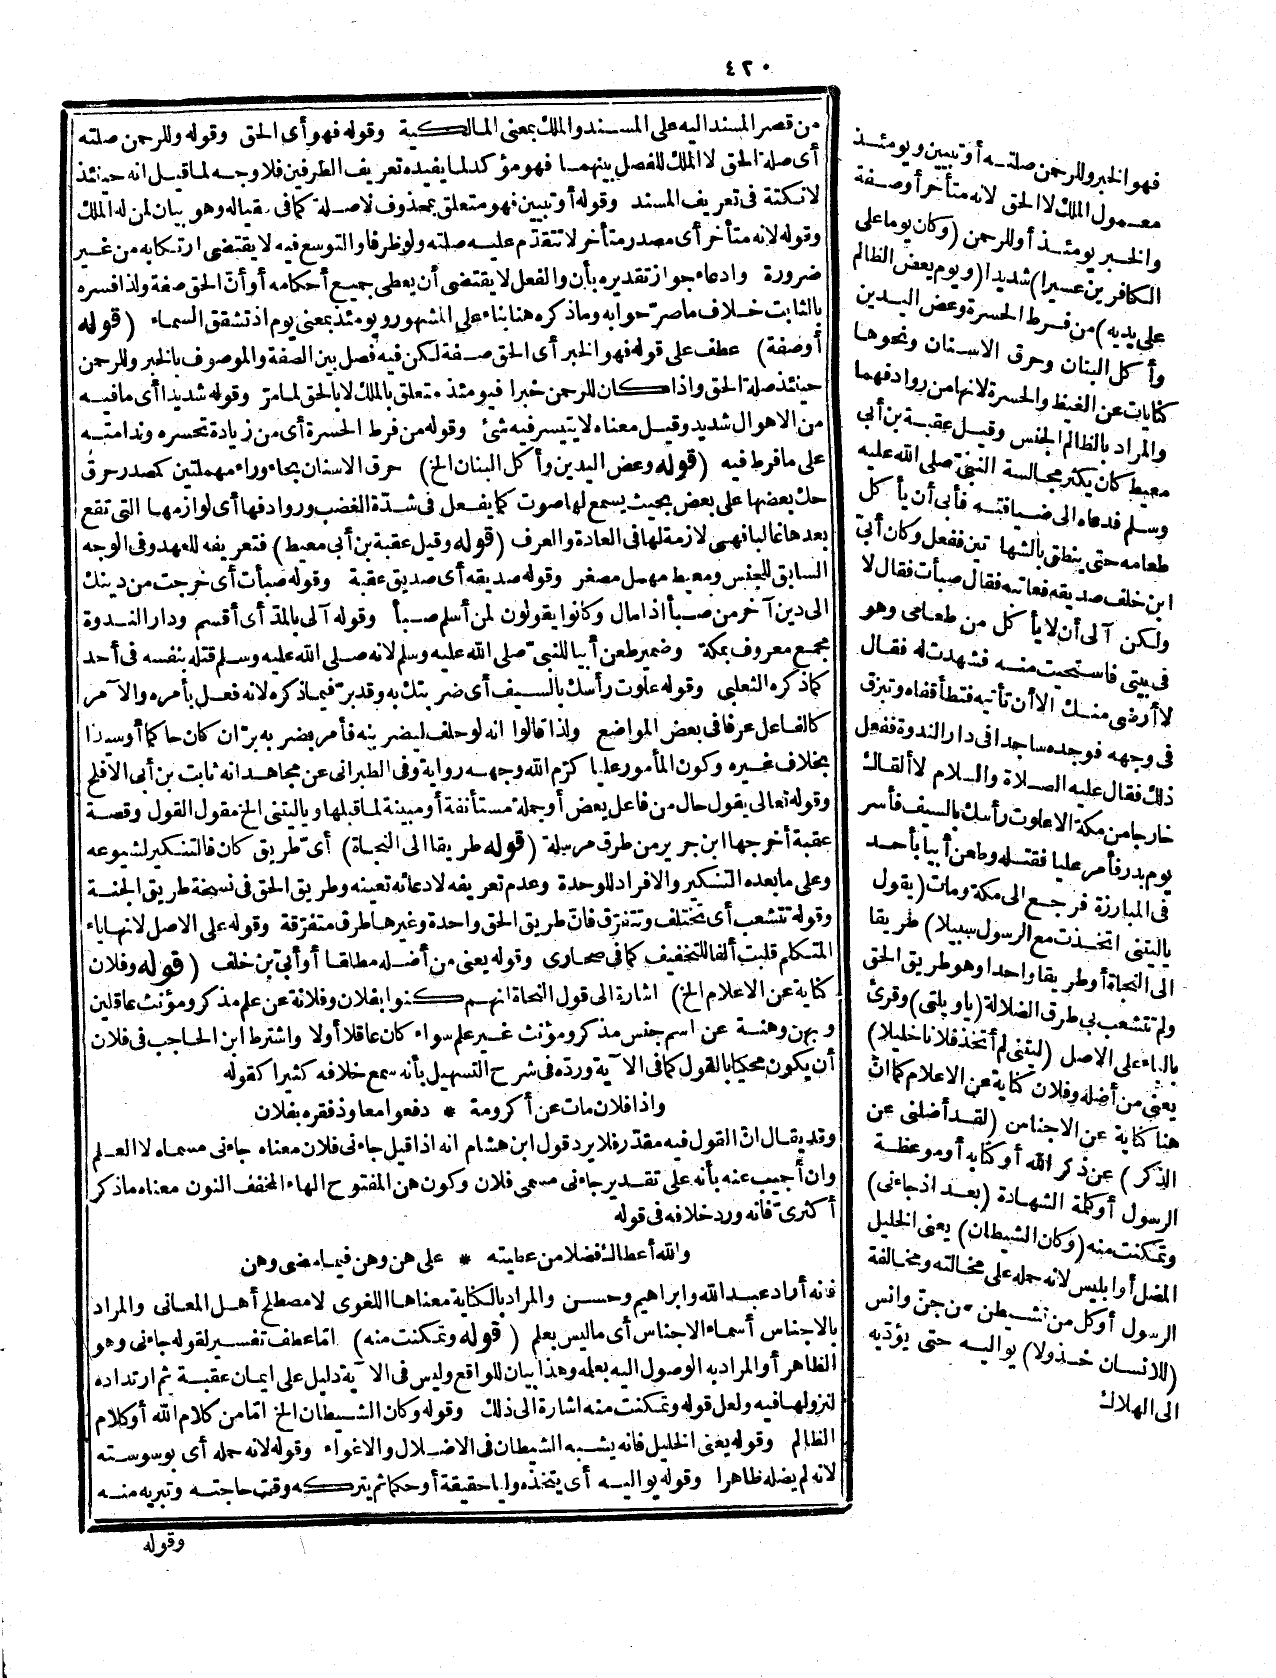 ٤٢٠
من قصر المسند اليه على المسند والملك بمعنى المالكية وقوله فهو أى الحق وقوله وللرحمن صلته
أى صلة الحق لا الملك للفصل بينهما فهو مؤكد لما يفيده تعريف الطرفين فلا وجه لما قيل انه حينئذ
لا نكتة فى تعريف المسند وقوله أو تبيين فهو متعلق بمحذوف لا صلة كما فى سقياله وهو بيان لمن له الملك
وقوله لانه متأخر أى مصدر متأخر لا تتقدّم عليه صلته ولو ظرفا والتوسع فيه لا يقتضى ارتكابه من غير
ضرورة وادعاء جواز تقديره بأن والفعل لا يقتضى أن يعطى جميع أحكامه أو أنّ الحق صفة ولذا فسره
بالثابت خلاف ما صرّحوا به وما ذكره هنا بناء على المشهور ويومئذ بمعنى يوم اذ تشقق السماء (قوله
أو صفة) عطف على قوله فهو الخبر أى الحق صفة لكن فيه فصل بين الصفة والموصوف بالخبر وللرحمن
حينئذ صلة الحق واذا كان للرحمن خبرا فيومئذ متعلق بالملك لا بالحق لما مرّ وقوله شديدا أى ما فيه
من الاهوال شديد وقيل معناه لا يتيسر فيه شئ وقوله من فرط الحسرة أى من زيادة تحسره وندامته
على ما فرط فيه (قوله وعض اليدين وأكل البنان الخ) حرق الاسنان بحاء وراء مهملتين كمصدر حرق
حك بعضها على بعض بحيث يسمع لها صوت كما يفعل فى شدّة الغضب وروادفها أى لوازمها التى تقع
بعدها غالبا فهى لازمة لها فى العادة والعرف (قوله وقيل عقبة بن أبى معيط) فتعريفه للعهد وفى الوجه
السابق للجنس ومعيط مهمل مصغر وقوله صديقه أى صديق عقبة وقوله صبأت أى خرجت من دينك
الى دين آخر من صبأ اذا مال وكانوا يقولون لمن أسلم صبأ وقوله آلى بالمدّ أى أقسم ودار الندوة
مجمع معروف بمكة وضمير طعن أبيا للنبىّ صلى الله عليه وسلم لانه صلى الله عليه وسلم قتله بنفسه فى أحد
كما ذكره الثعلبى وقوله علوت رأسك بالسيف أى ضربتك به وقد برّ فيما ذكره لانه فعل بأمره والآمر
كالفاعل عرفا فى بعض المواضع ولذا قالوا انه لو حلف ليضربنه فأمر بضربه برّ ان كان حاكما أو سيدا
بخلاف غيره وكون المأمور عليا كرّم الله وجهه رواية وفى الطبرانى عن مجاهد انه ثابت بن أبى الافلح
وقوله تعالى يقول حال من فاعل يعض أو جملة مستأنفة أو مبينة لما قبلها ويا ليتنى الخ مقول القول وقصة
عقبة أخرجها ابن جرير من طرق مرسلة (قوله طريقا الى النجاة) أىّ طريق كان فالتنكير لشيوعه
وعلى ما بعده التنكير والافراد للوحدة وعدم تعريفه لادعائه تعينه وطريق الحق فى نسخة طريق الجنة
وقوله تتشعب أى تختلف وتتفرّق فانّ طريق الحق واحدة وغيرها طرق متفرّقة وقوله على الاصل لانها ياء
المتكلم قلبت ألفا للتخفيف كما فى صحارى وقوله يعنى من أضله مطلقا أو أبىّ بن خلف (قوله وفلان
كناية عن الاعلام الخ) اشارة الى قول النحاة انهم كنوا بفلان وفلانة عن علم مذكر ومؤنث عاقلين
وبهن وهنة عن اسم جنس مذكر ومؤنث غير علم سواء كان عاقلا أولا واشترط ابن الحاجب فى فلان
أن يكون محكيا بالقول كما فى الآية وردّه فى شرح التسهيل بأنه سمع خلافه كثيرا كقوله
واذا فلان مات عن أكرومة * دفعوا معاوذ فقره بفلان
وقد يقال انّ القول فيه مقدّر فلا يرد قول ابن هشام انه اذا قيل جاءنى فلان معناه جاءنى مسماه لا العلم
وان أجيب عنه بأنه على تقدير جاءنى مسمى فلان وكون هن المفتوح الهاء المخفف النون معناه ما ذكر
أكثرىّ فانه ورد خلافه فى قوله
والله أعطاك فضلا من عطيته * على هن وهن فيما مضى وهن
فانه أراد عبد الله وابراهيم وحسن والمراد بالكناية معناها اللغوى لا مصطلح أهل المعانى والمراد
بالاجناس أسماء الاجناس أى ما ليس بعلم (قوله وتمكنت منه) امّا عطف تفسير لقوله جاءنى وهو
الظاهر أو المراد به الوصول اليه بعلمه وهذا بيان للواقع وليس فى الآية دليل على ايمان عقبة ثم ارتداده
لنزولها فيه ولعل قوله وتمكنت منه اشارة الى ذلك وقوله وكان الشيطان الخ امّا من كلام الله أو كلام
الظالم وقوله يعنى الخليل فانه يشبه الشيطان فى الاضلال والاغواء وقوله لانه حمله أى بوسوسته
لانه لم يضله ظاهرا وقوله يواليه أى يتخذه وليا حقيقة أو حكما ثم يتركه وقت حاجته وتبريه منه
وقوله
فهو الخبر وللرحمن صلته أو تبيين ويومئذ
معمول الملك لا الحق لانه متأخر أو صفة
والخبر يومئذ أو للرحمن (وكان يوما على
الكافرين عسيرا) شديدا (ويوم يعض الظالم
على يديه) من فرط الحسرة وعض اليدين
وأكل البنان وحرق الاسنان ونحوها
كنايات عن الغيظ والحسرة لانها من روادفهما
والمراد بالظالم الجنس وقيل عقبة بن أبى
معيط كان يكثر مجالسة النبىّ صلى الله عليه
وسلم فدعاه الى ضيافته فأبى أن يأكل
طعامه حتى ينطق بالشهادتين ففعل وكان أبىّ
ابن خلف صديقه فعاتبه فقال صبأت فقال لا
ولكن آلى أن لا يأكل من طعامى وهو
فى بيتى فاستحيت منه فشهدت له فقال
لا أرضى منك الا أن تأتيه فتطأ قفاه وتبزق
فى وجهه فوجده ساجدا فى دار الندوة ففعل
ذلك فقال عليه الصلاة والسلام لا ألقاك
خارجا من مكة الا علوت رأسك بالسيف فأسر
يوم بدر فأمر عليا فقتله وطعن أبيا بأحد
فى المبارزة فرجع الى مكة ومات (يقول
يا ليتنى اتخذت مع الرسول سبيلا) طريقا
الى النجاة أو طريقا واحدا وهو طريق الحق
ولم تتشعب بى طرق الضلالة (يا ويلتى) وقرئ
بالياء على الاصل (ليتنى لم أتخذ فلانا خليلا)
يعنى من أضله وفلان كناية عن الاعلام كما انّ
هنا كناية عن الاجناس (لقد أضلنى عن
الذكر) عن ذكر الله أو كتابه أو موعظة
الرسول أو كلمة الشهادة (بعد اذ جاءنى)
وتمكنت منه (وكان الشيطان) يعنى الخليل
المضل أو ابليس لانه حمله على مخالته ومخالفة
الرسول أو كل من تشيطن من جنّ وانس
(للانسان خذولا) يواليه حتى يؤدّيه
الى الهلاك